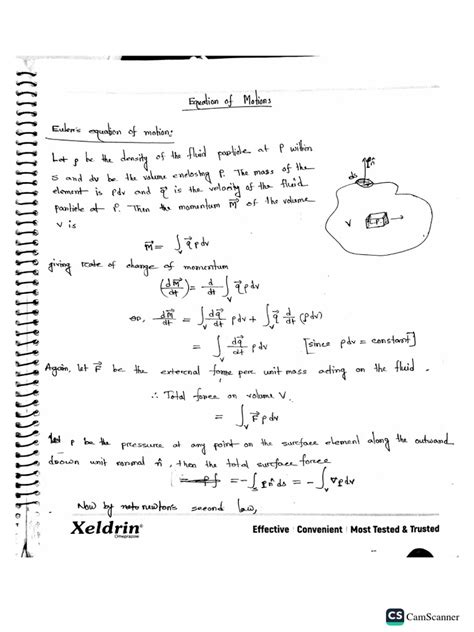 Equation of Motions
Euler's equation of motion:
Let ρ be the density of the fluid particle at P within
S and dv be the volume enclosing P. The mass of the
element is ρdv and q⃗ is the velocity of the fluid
particle at P. Then the momentum M⃗ of the volume
V is
M⃗ = ∫_V q⃗ ρ dv
giving rate of change of momentum
(dM⃗/dt) = d/dt ∫_V q⃗ ρ dv
or, dM⃗/dt = ∫_V dq⃗/dt ρ dv + ∫_V q⃗ d/dt (ρ dv)
= ∫_V dq⃗/dt ρ dv [since ρdv = constant]
Again, let F⃗ be the external force per unit mass acting on the fluid.
∴ Total force on volume V.
= ∫_V F⃗ ρ dv
Let p be the pressure at any point on the surface element along the outward
drawn unit normal n̂, then the total surface force
= -∫_S p n̂ ds = -∫_V ∇p dv
Now by newton's second law,
n̂
ds
V
P
Xeldrin®
Omeprazole
Effective Convenient Most Tested & Trusted
CS CamScanner